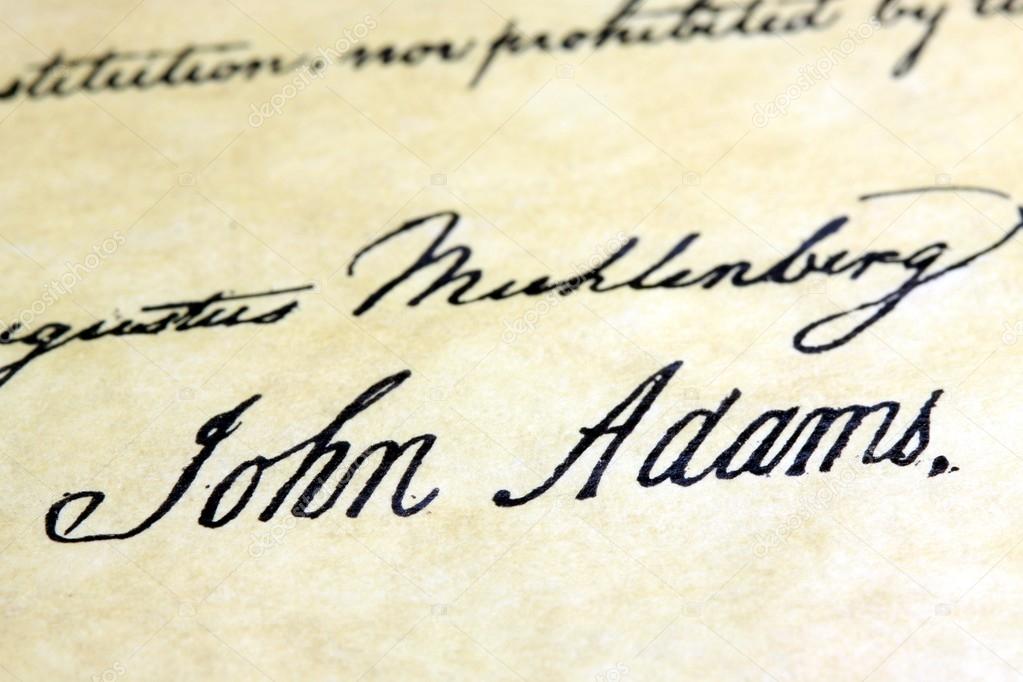 stitution, nor prohibited by
gustus Muhlenberg
John Adams.
depositphotos